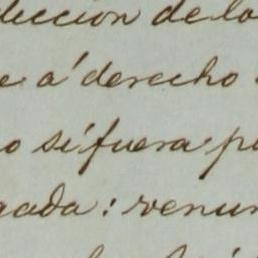 dicción de la
e a' derecho
o si fuera p
gada: renun